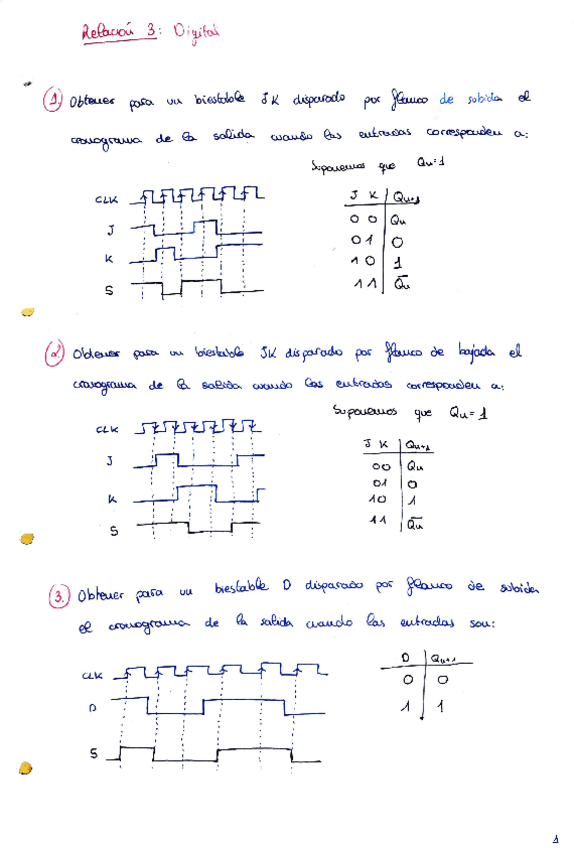 Relación 3: Digital
1. Obtener para un biestable JK disparado por flanco de subida el
cronograma de la salida cuando las entradas corresponden a:
Suponemos que Qn=1
CLK
J
K
S
J K Qn+1
0 0 Qn
0 1 0
1 0 1
1 1 Q̅n
2. Obtener para un biestable JK disparado por flanco de bajada el
cronograma de la salida cuando las entradas corresponden a:
Suponemos que Qn=1
CLK
J
K
S
J K Qn+1
00 Qn
01 0
10 1
11 Q̅n
3. Obtener para un biestable D disparado por flanco de subida
el cronograma de la salida cuando las entradas son:
CLK
D
S
D Qn+1
0 0
1 1
1